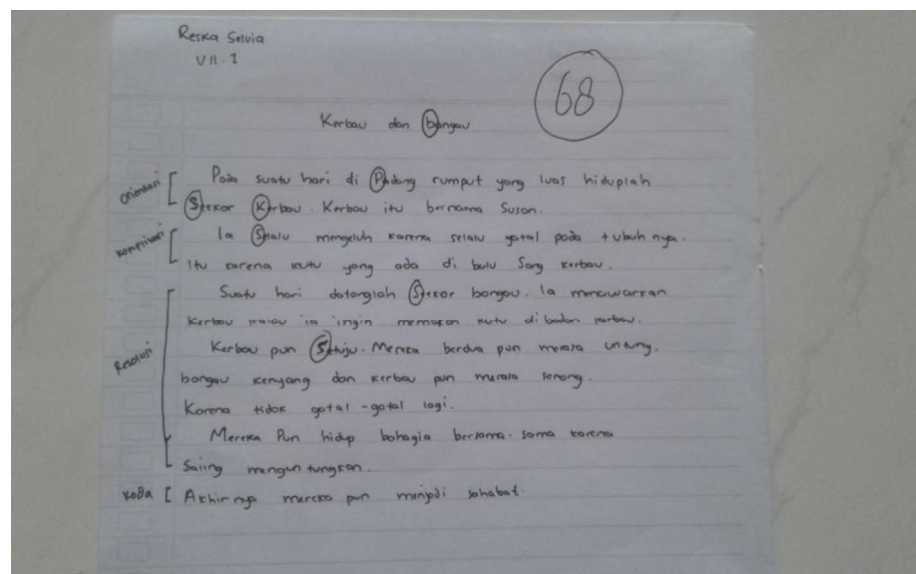 Reska Selvia
VII.1
68
Kerbau dan bangau
Orientasi
Pada suatu hari di Padang rumput yang luas hiduplah
Seekor Kerbau. Kerbau itu bernama Susan.
Komplikasi
Ia Selalu mengeluh karena selalu gatal pada tubuh nya.
Itu karena kutu yang ada di bulu Sang kerbau.
Resolusi
Suatu hari datanglah Seekor bangau. Ia menawarkan
Kerbau kalau ia ingin memakan kutu di badan kerbau.
Kerbau pun Setuju. Mereka berdua pun merasa untung.
bangau kenyang dan kerbau pun merasa senang.
Karena tidak gatal-gatal lagi.
Mereka Pun hidup bahagia bersama-sama karena
Saling menguntungkan.
Koda
Akhirnya mereka pun menjadi sahabat.